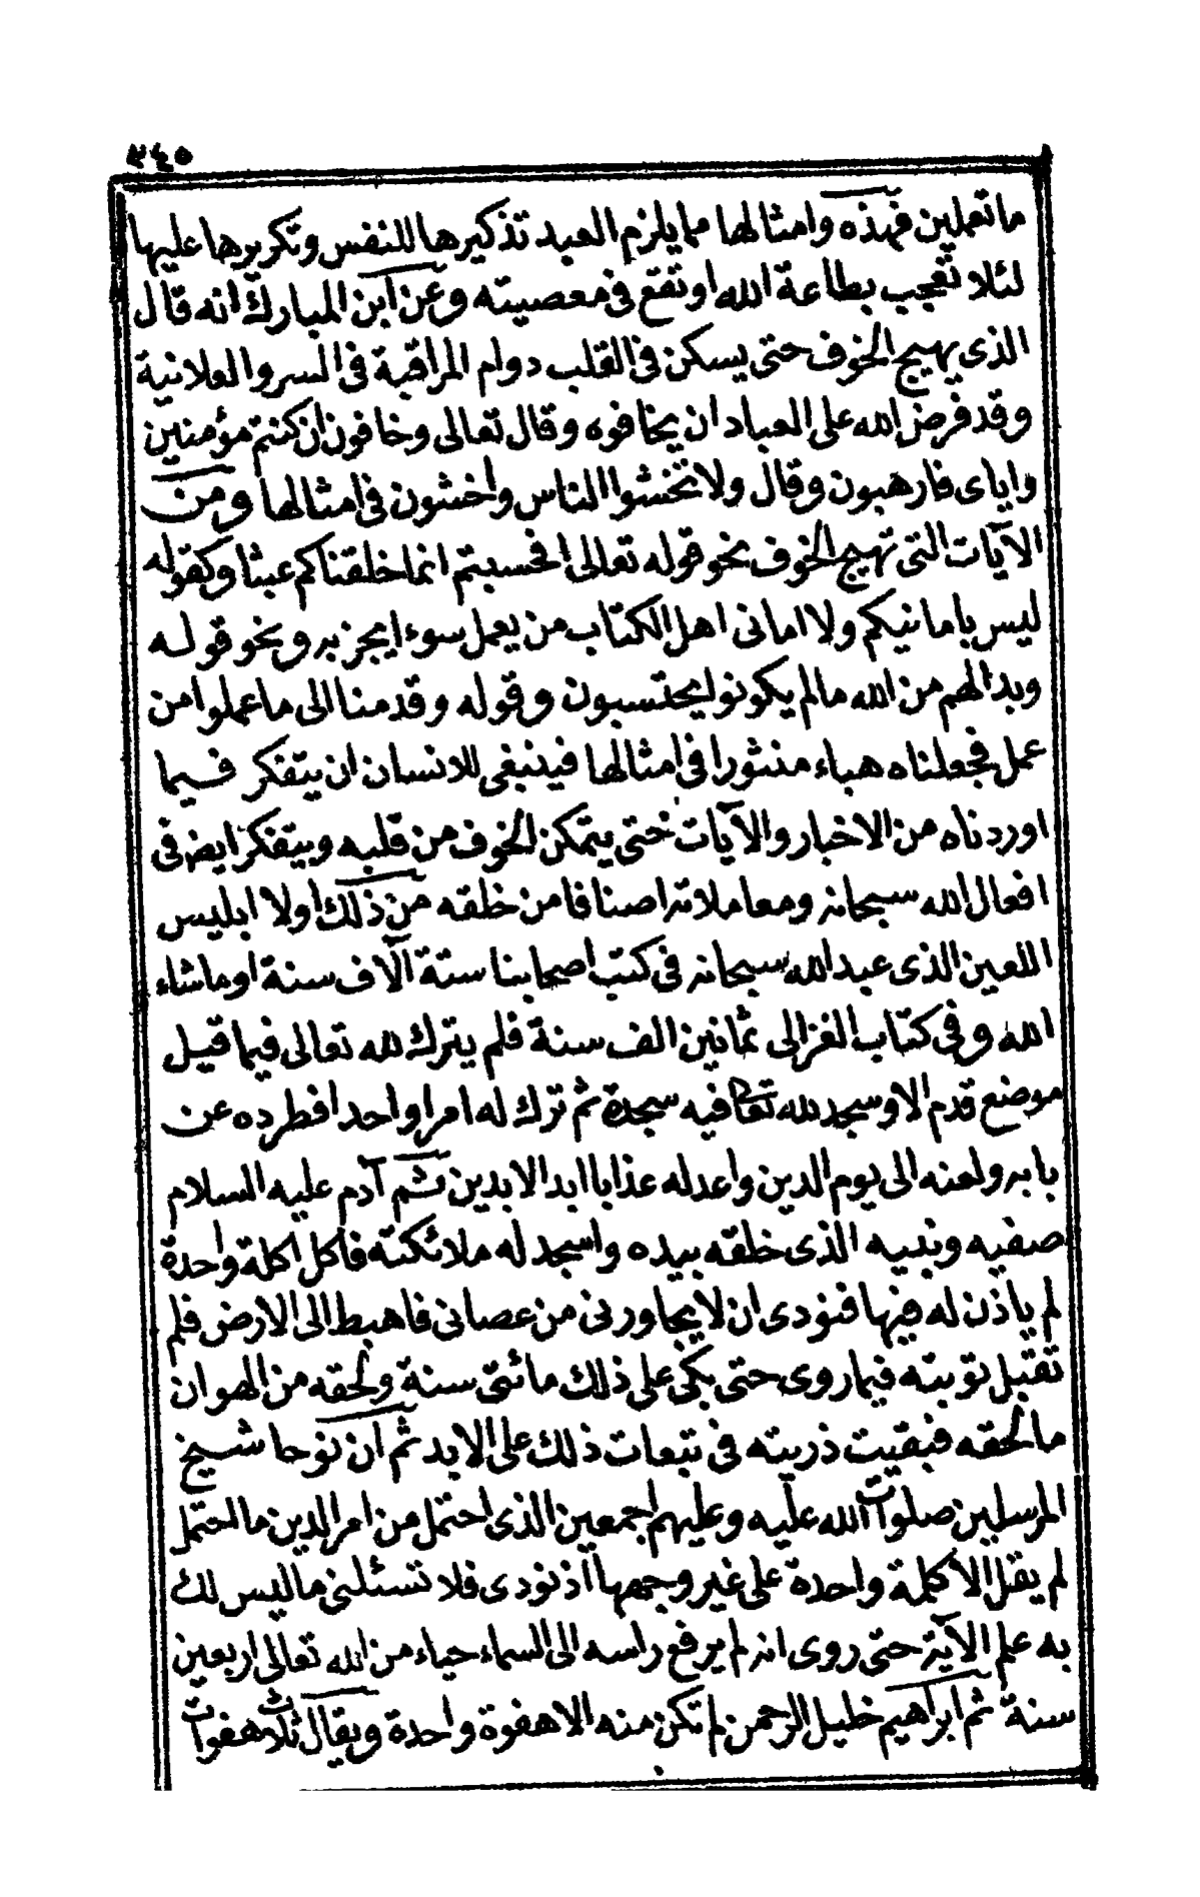 ٣٤٥
ما تعملين فهذه وامثالها مما يلزم العبد تذكيرها للنفس وتكريرها عليها
لئلا تعجب بطاعة الله او تقع فى معصيته وعن ابن المبارك انه قال
الذى يهيج الخوف حتى يسكن فى القلب دوام المراقبة فى السر والعلانية
وقد فرض الله على العباد ان يخافوه وقال تعالى وخافون ان كنتم مؤمنين
واياى فارهبون وقال ولا تخشوا الناس واخشون فى امثالها ومن
الآيات التى تهيج الخوف نحو قوله تعالى افحسبتم انما خلقناكم عبثا وكقوله
ليس بامانيكم ولا امانى اهل الكتاب من يعمل سوءا يجز به ونحو قوله
وبدا لهم من الله مالم يكونوا يحتسبون وقوله وقدمنا الى ما عملوا من
عمل فجعلناه هباء منثورا فى امثالها فينبغى للانسان ان يتفكر فيما
اوردناه من الاخبار والآيات حتى يتمكن الخوف من قلبه ويتفكر ايضا فى
افعال الله سبحانه ومعاملاته اصنافا من خلقه من ذلك اولا ابليس
اللعين الذى عبد الله سبحانه فى كتب اصحابنا ستة آلاف سنة او ماشاء
الله وفى كتاب الغزالى ثمانين الف سنة فلم يترك لله تعالى فيما قيل
موضع قدم الا وسجد لله تعا فيه سجدة ثم ترك له امرا واحدا فطرده عن
بابه ولعنه الى يوم الدين واعد له عذابا ابد الابدين ثم آدم عليه السلام
صفيه ونبيه الذى خلقه بيده واسجد له ملائكته فاكل اكلة واحدة
لم ياذن له فيها فنودى ان لا يجاورنى من عصانى فاهبط الى الارض فلم
تقبل توبته فيما روى حتى بكى على ذلك مائتى سنة ولحقه من الهوان
ما لحقه فبقيت ذريته فى تبعات ذلك على الابد ثم ان نوحا شيخ
المرسلين صلوات الله عليه وعليهم اجمعين الذى احتمل من امر الدين ما احتمل
لم يقل الا كلمة واحدة على غير وجهها اذ نودى فلا تسئلنى ماليس لك
به علم الآية حتى روى انه لم يرفع راسه الى السماء حياء من الله تعالى اربعين
سنة ثم ابراهيم خليل الرحمن لم تكن منه الا هفوة واحدة ويقال ثلاث هفوات